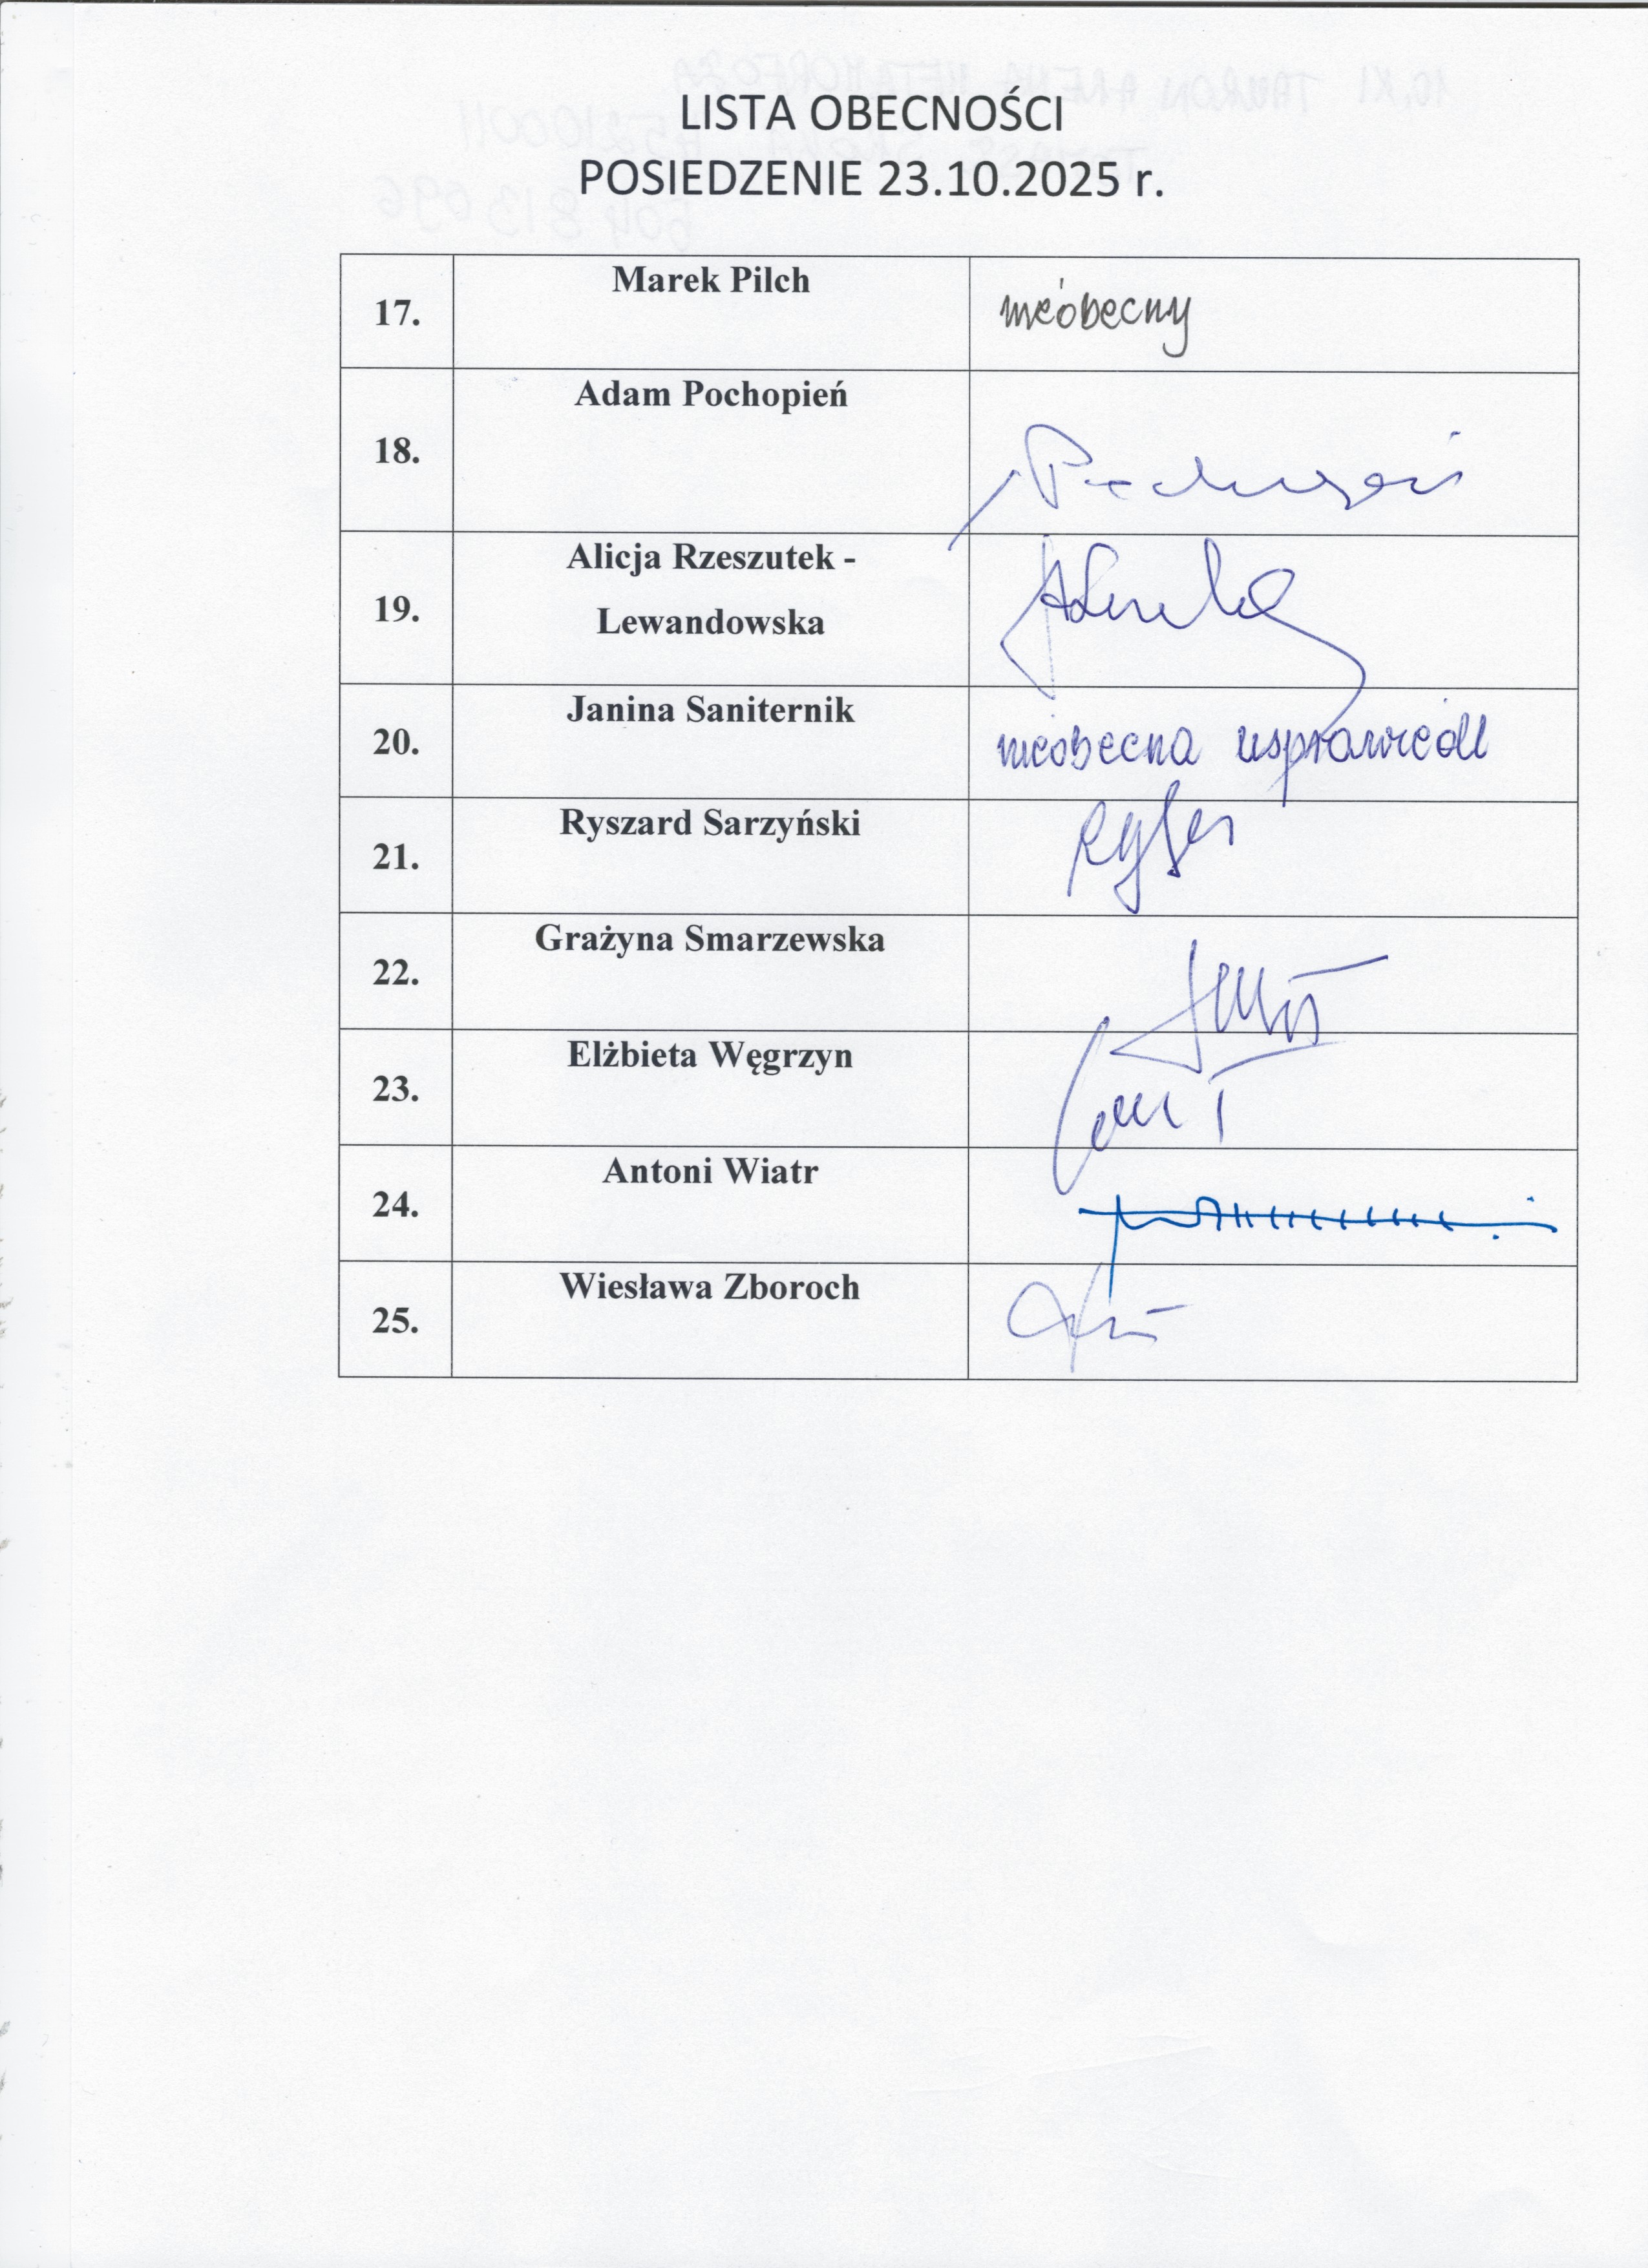 LISTA OBECNOŚCI
POSIEDZENIE 23.10.2025 r.
17. Marek Pilch nieobecny
18. Adam Pochopień
19. Alicja Rzeszutek -
Lewandowska
20. Janina Saniternik nieobecna usprawiedl
21. Ryszard Sarzyński
22. Grażyna Smarzewska
23. Elżbieta Węgrzyn
24. Antoni Wiatr
25. Wiesława Zboroch